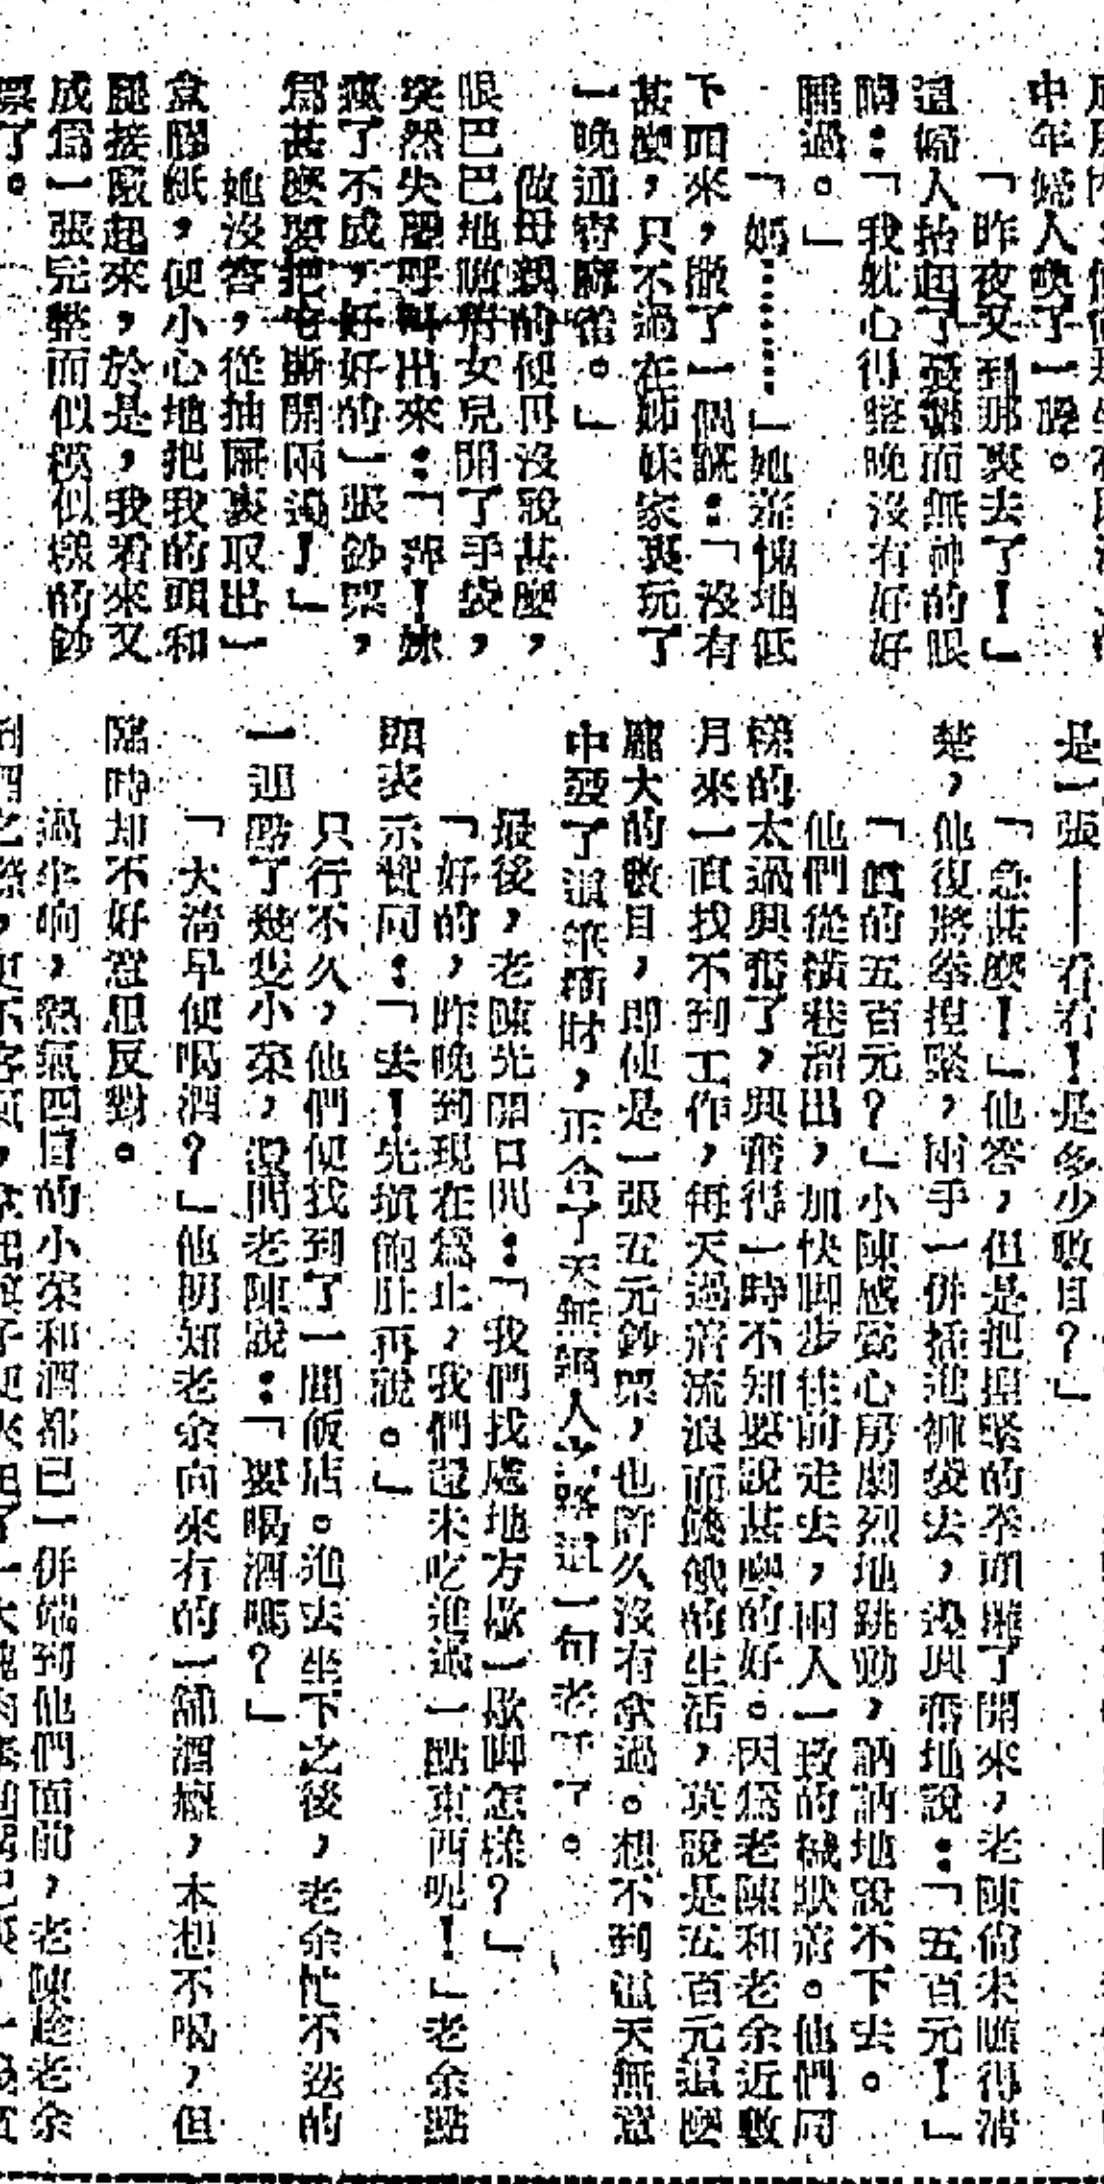 中年婦人喚了一聲。
「昨夜又到那裏去了！」
這婦人抬起了憂鬱而無神的眼
睛：「我躭心得整晚沒有好好
睡過。」
「媽……」她羞愧地低
下頭來，撒了一個謊：「沒有
甚麼，只不過在姊妹家裏玩了
一晚通宵麻雀。」
做母親的便再沒說甚麼，
眼巴巴地瞧着女兒開了手袋，
突然失聲呼叫出來：「呀！妳
瘋了不成，好好的一張鈔票，
爲甚麼要把它撕開兩邊！」
她沒答，從抽屜裏取出一
盒膠紙，便小心地把我的頭和
腿接駁起來，於是，我看來又
成爲一張完整而似模似樣的鈔
票了。
是一張——看看！是多少數目？」
「急甚麼！」他答，但是把揑緊的拳頭攤了開來，老陳尙未瞧得清
楚，他復將拳揑緊，兩手一併插進褲袋去，極興奮地說：「五百元！」
「眞的五百元？」小陳感覺心房劇烈地跳動，訥訥地說不下去。
他們從橫巷溜出，加快脚步往前走去，兩人一致的緘默着。他們同
樣的太過興奮了，興奮得一時不知要說甚麼的好。因爲老陳和老余近數
月來一直找不到工作，每天過着流浪而饑餓的生活，莫說是五百元這麼
龐大的數目，卽使是一張五元鈔票，也許久沒有拿過。想不到這天無意
中發了這筆橫財，正合了天無絕人之路這一句老話了。
最後，老陳先開口問：「我們找處地方歇一歇脚怎樣？」
「好的，昨晚到現在爲止，我們還未吃進過一點東西呢！」老余點
頭表示贊同：「去！先塡飽肚再說。」
只行不久，他們便找到了一間飯店。進去坐下之後，老余忙不迭的
一連點了幾隻小菜，還問老陳說：「要喝酒嗎？」
「大清早便喝酒？」他明知老余向來有的一舖酒癮，本想不喝，但
臨時却不好意思反對。
過半响，熱氣四冒的小菜和酒都已一併端到他們面前，老陳趁老余